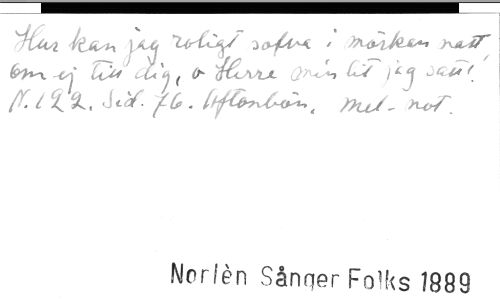 Hur kan jag roligt sofva i mörkan natt
om ej till dig, o Herre min lit jag satt!
N. 122. Sid. 76. Aftonbön. Mel-not.
Norlèn Sånger Folks 1889